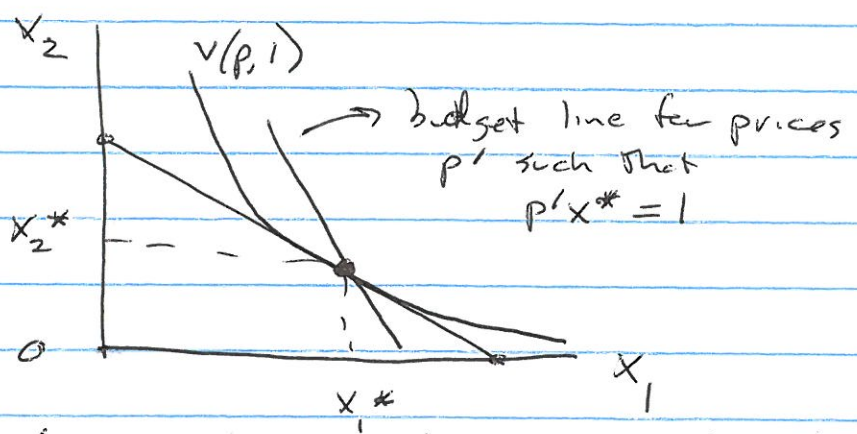 X₂
V(p, 1)
budget line for prices
p' such that
p'x* = 1
X₂*
0
X₁
X₁*